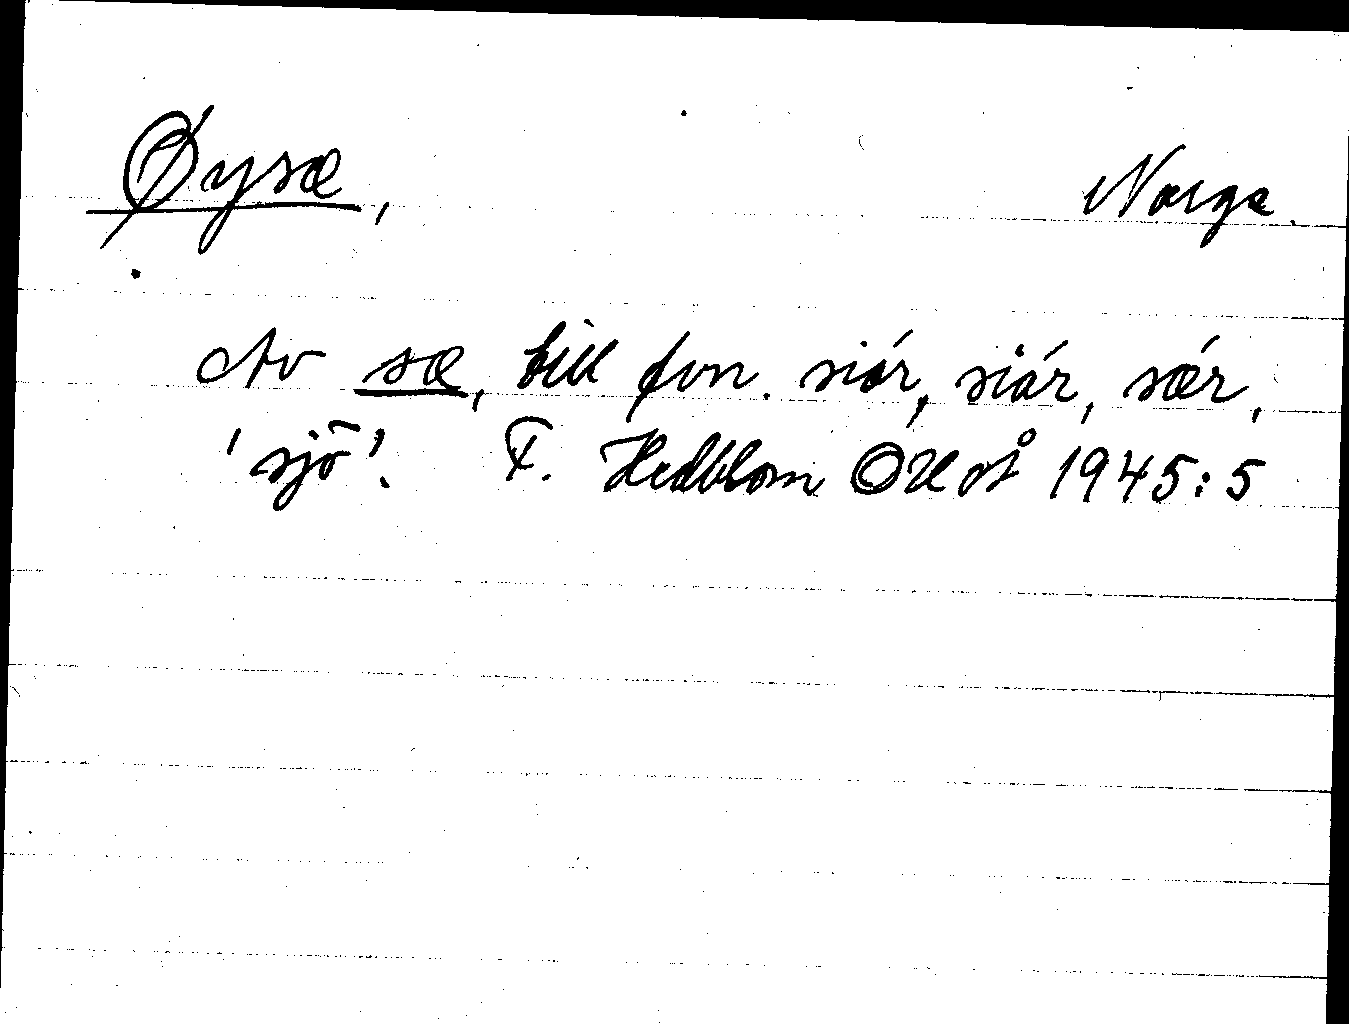 Øysæ, Norge.
Av sæ, till fvn. siór, siár, sær,
'sjö'. F. Hedblom OUÅ 1945:5